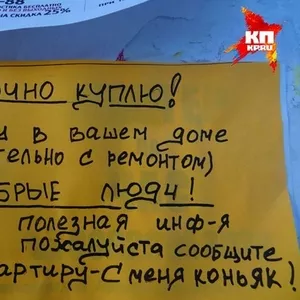 -88
СТИКА БЕСПЛАТНО
И БЕЗ ВЫХОДНЫХ
А СКИДКА 25%
ПРИ
КП
KP.RU
ЧНО КУПЛЮ!
В ВАШЕМ ДОМЕ
ТЕЛЬНО С РЕМОНТОМ)
БРЫЕ ЛЮДИ!
ПОЛЕЗНАЯ ИНФ-Я
ПОЖАЛУЙСТА СООБЩИТЕ
АРТИРУ-С МЕНЯ КОНЬЯК!